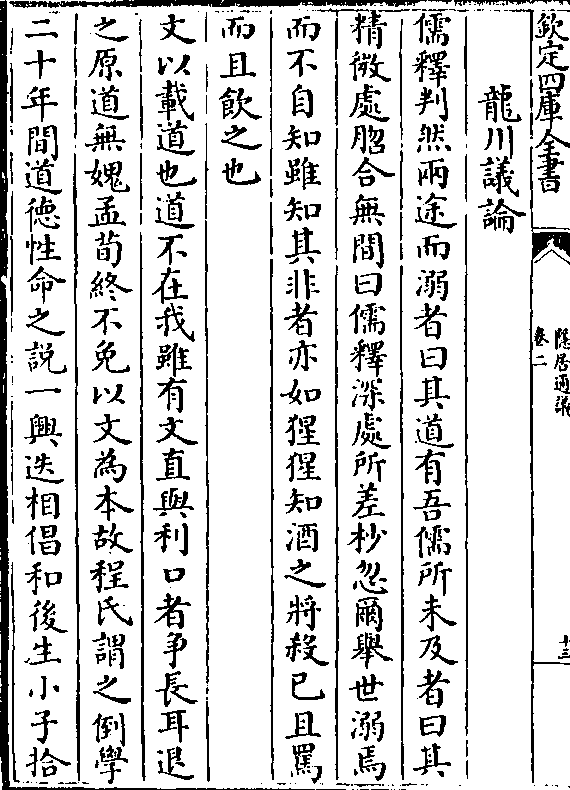 欽定四庫全書
隱居通議
卷二
十三
龍川議論
儒釋判然兩途而溺者曰其道有吾儒所未及者曰其
精微處脗合無間曰儒釋深處所差杪忽爾舉世溺焉
而不自知雖知其非者亦如猩猩知酒之將殺已且罵
而且飲之也
文以載道也道不在我雖有文直與利口者争長耳退
之原道無媿孟荀終不免以文為本故程氏謂之倒學
二十年間道德性命之説一興迭相倡和後生小子拾